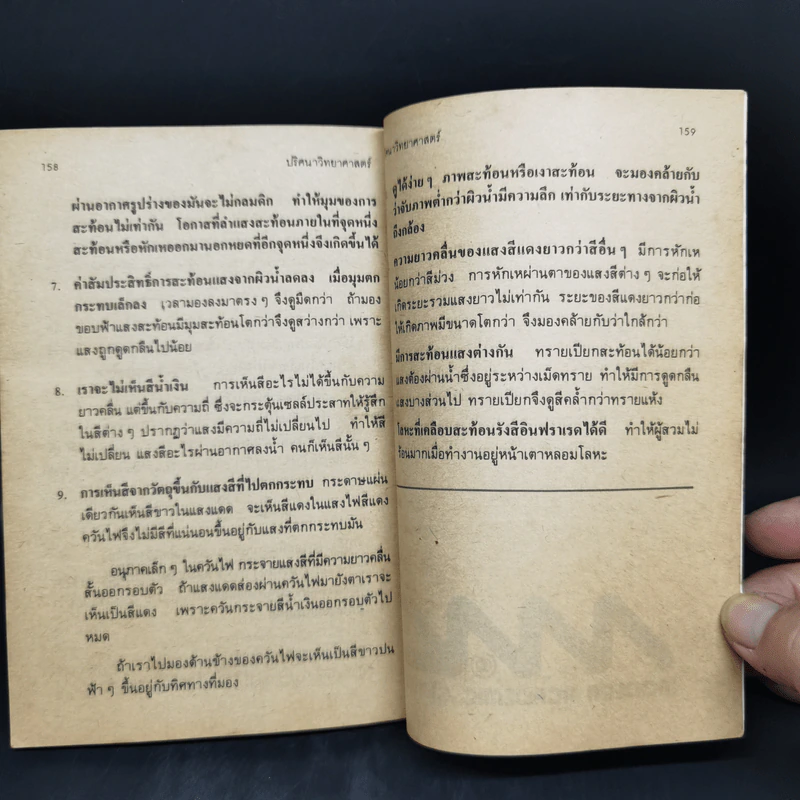 158
ปริศนาวิทยาศาสตร์
ผ่านอากาศรูปร่างของมันจะไม่กลมดิก ทำให้มุมของการ
สะท้อนไม่เท่ากัน โอกาสที่ลำแสงสะท้อนภายในที่จุดหนึ่ง
สะท้อนหรือหักเหออกมานอกหยดที่อีกจุดหนึ่งจึงเกิดขึ้นได้
7. ค่าสัมประสิทธิ์การสะท้อนแสงจากผิวน้ำลดลง เมื่อมุมตก
กระทบเล็กลง เวลามองลงมาตรง ๆ จึงดูมืดกว่า ถ้ามอง
ขอบฟ้าแสงสะท้อนมีมุมสะท้อนโตกว่าจึงดูสว่างกว่า เพราะ
แสงถูกดูดกลืนไปน้อย
8. เราจะไม่เห็นสีน้ำเงิน การเห็นสีอะไรไม่ได้ขึ้นกับความ
ยาวคลื่น แต่ขึ้นกับความถี่ ซึ่งจะกระตุ้นเซลล์ประสาทให้รู้สึก
ในสีต่าง ๆ ปรากฏว่าแสงมีความถี่ไม่เปลี่ยนไป ทำให้สี
ไม่เปลี่ยน แสงสีอะไรผ่านอากาศลงน้ำ คนก็เห็นสีนั้น ๆ
9. การเห็นสีจากวัตถุขึ้นกับแสงสีที่ไปตกกระทบ กระดาษแผ่น
เดียวกันเห็นสีขาวในแสงแดด จะเห็นสีแดงในแสงไฟสีแดง
ควันไฟจึงไม่มีสีที่แน่นอนขึ้นอยู่กับแสงที่ตกกระทบมัน
อนุภาคเล็ก ๆ ในควันไฟ กระจายแสงสีที่มีความยาวคลื่น
สั้นออกรอบตัว ถ้าแสงแดดส่องผ่านควันไฟมายังตาเราจะ
เห็นเป็นสีแดง เพราะควันกระจายสีน้ำเงินออกรอบตัวไป
หมด
ถ้าเราไปมองด้านข้างของควันไฟจะเห็นเป็นสีขาวปน
ฟ้า ๆ ขึ้นอยู่กับทิศทางที่มอง
ศนาวิทยาศาสตร์
159
ดูได้ง่าย ๆ ภาพสะท้อนหรือเงาสะท้อน จะมองคล้ายกับ
ว่าจับภาพต่ำกว่าผิวน้ำมีความลึก เท่ากับระยะทางจากผิวน้ำ
ถึงกล้อง
ความยาวคลื่นของแสงสีแดงยาวกว่าสีอื่น ๆ มีการหักเห
น้อยกว่าสีม่วง การหักเหผ่านตาของแสงสีต่าง ๆ จะก่อให้
เกิดระยะรวมแสงยาวไม่เท่ากัน ระยะของสีแดงยาวกว่าก่อ
ให้เกิดภาพมีขนาดโตกว่า จึงมองคล้ายกับว่าใกล้กว่า
มีการสะท้อนแสงต่างกัน ทรายเปียกสะท้อนได้น้อยกว่า
แสงต้องผ่านน้ำซึ่งอยู่ระหว่างเม็ดทราย ทำให้มีการดูดกลืน
แสงบางส่วนไป ทรายเปียกจึงดูสีคล้ำกว่าทรายแห้ง
โลหะที่เคลือบสะท้อนรังสีอินฟราเรดได้ดี ทำให้ผู้สวมไม่
ร้อนมากเมื่อทำงานอยู่หน้าเตาหลอมโลหะ